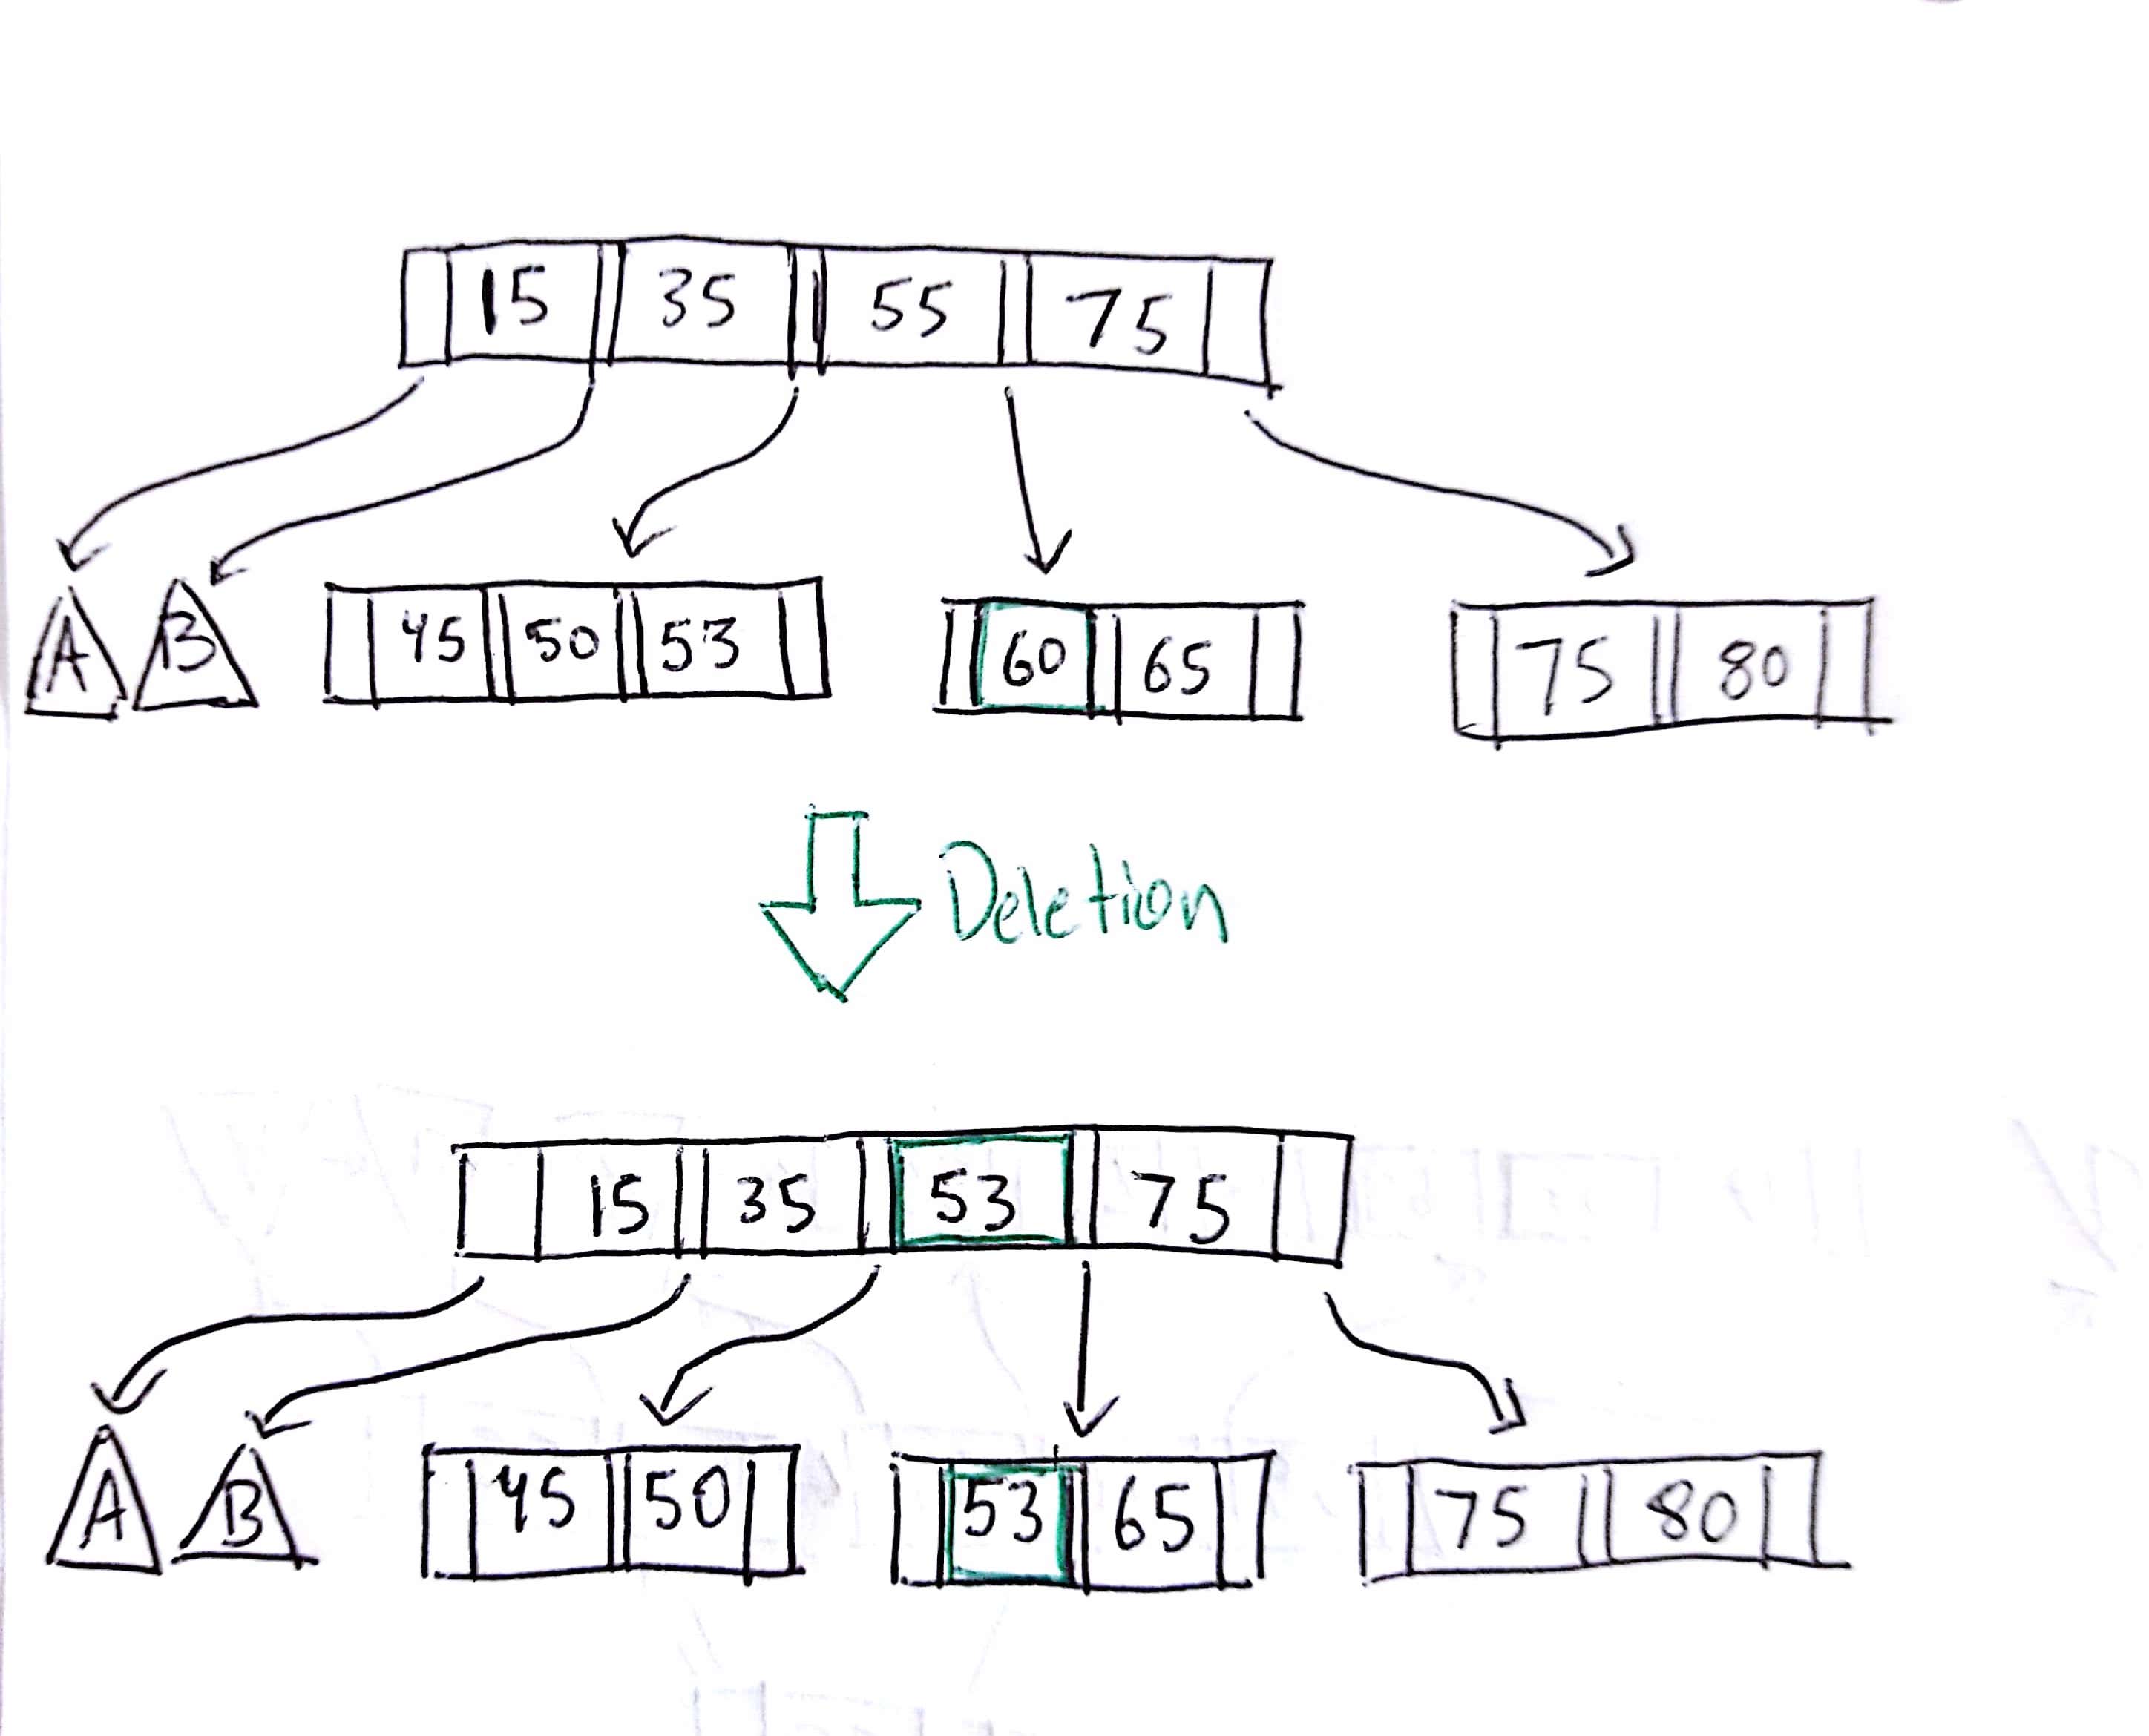 15 35 55 75
A B 45 50 53 60 65 75 80
Deletion
15 35 53 75
A B 45 50 53 65 75 80